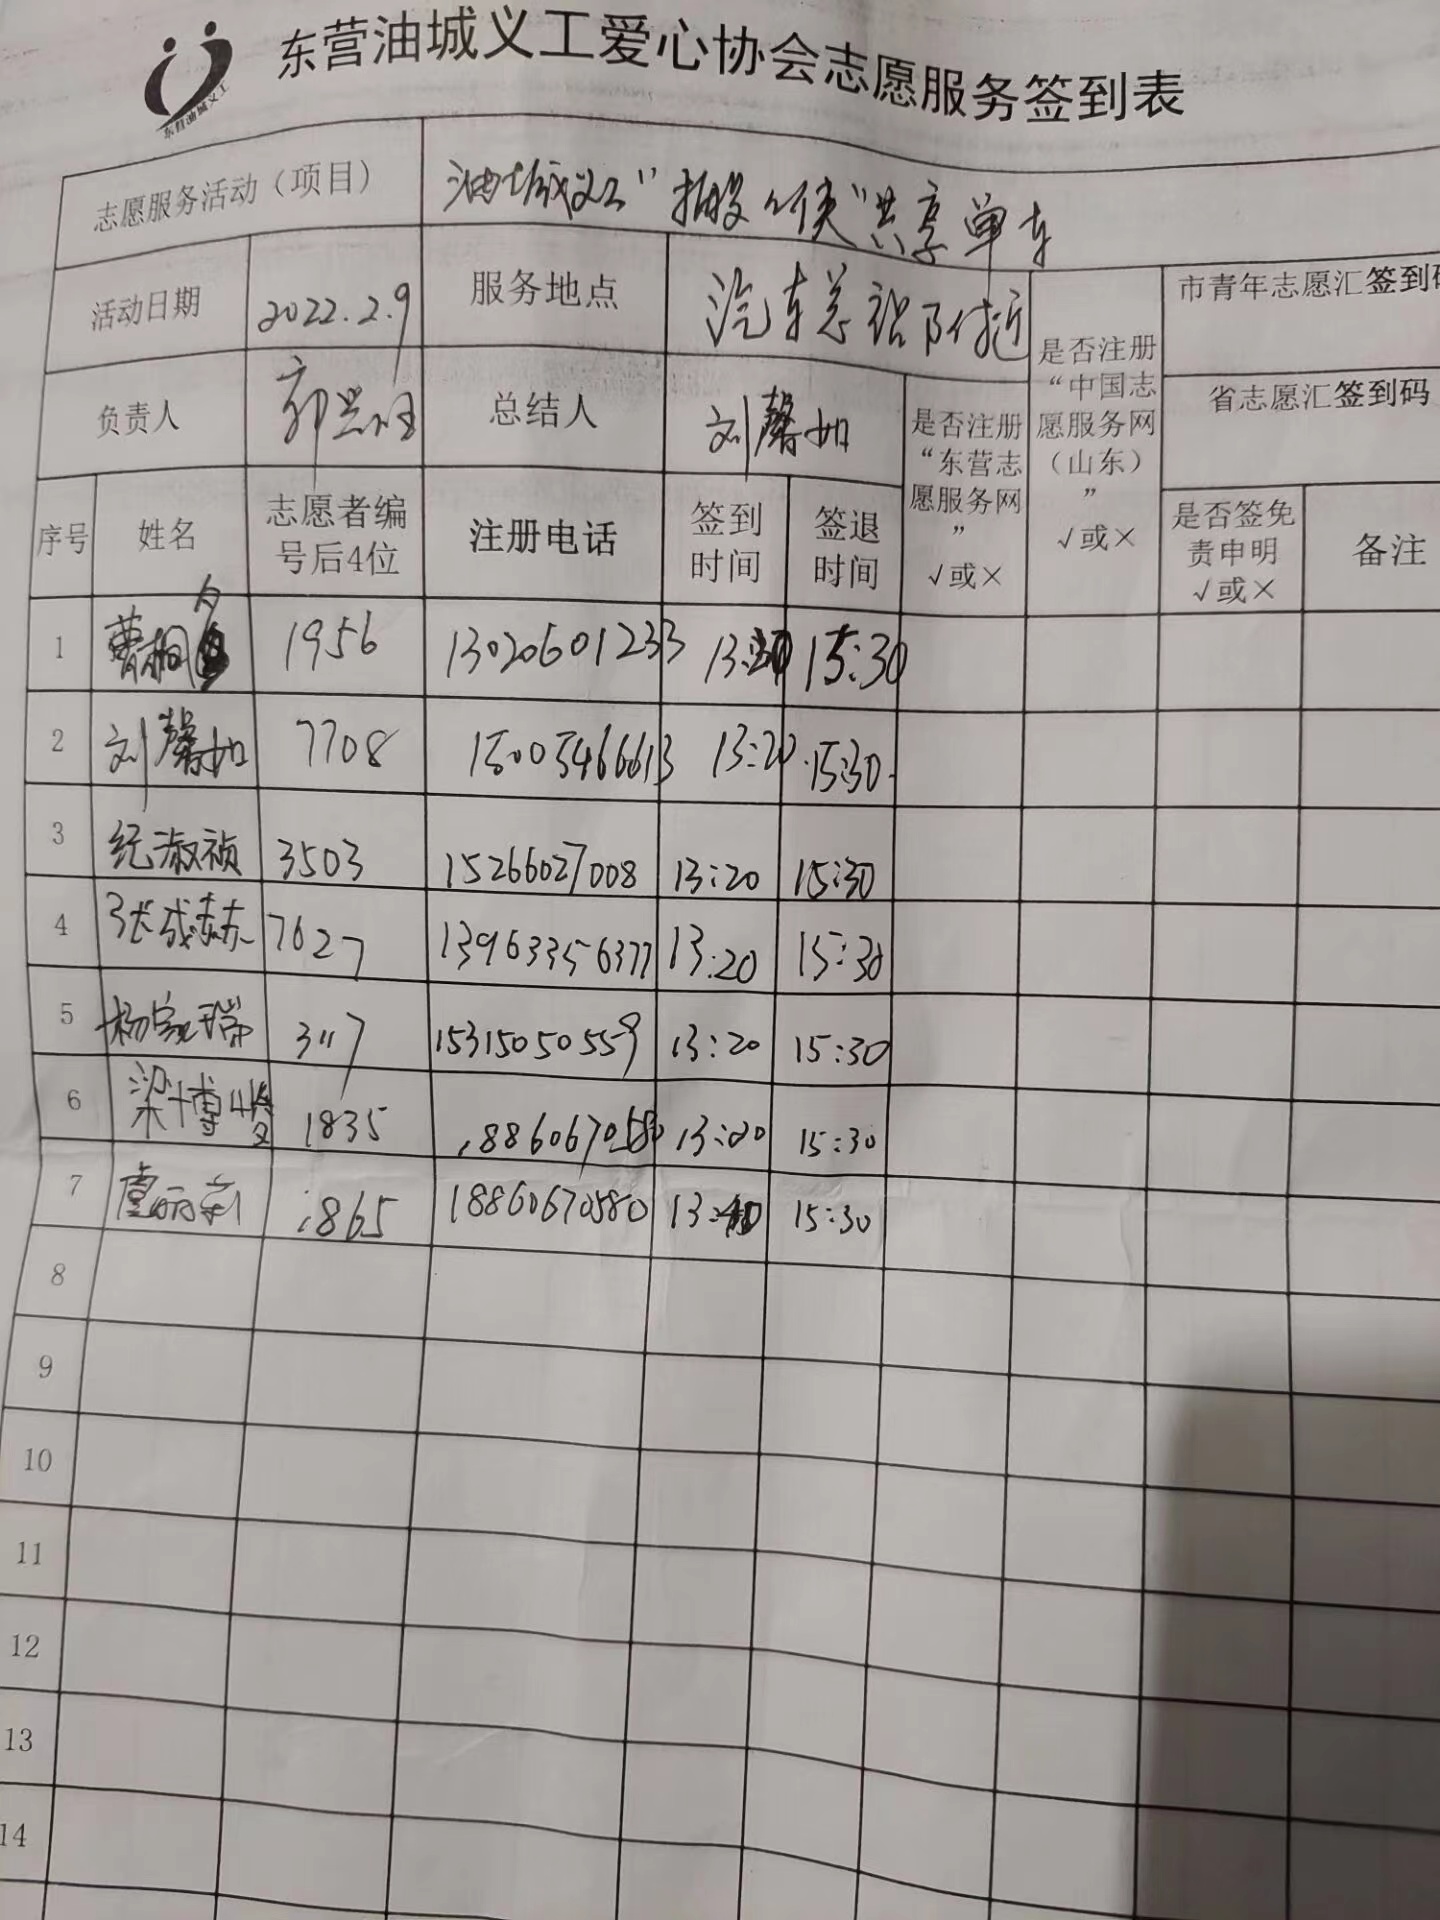 东营油城义工
东营油城义工爱心协会志愿服务签到表
志愿服务活动（项目） 油城义工“搬 侠”共享单车
活动日期 2022.2.9 服务地点 汽车总站附近 市青年志愿汇签到码
负责人 郭 总结人 刘馨如 省志愿汇签到码
序号 姓名 志愿者编号后4位 注册电话 签到时间 签退时间 是否注册“东营志愿服务网” √或× 是否注册“中国志愿服务网（山东）” √或× 是否签免责申明 √或× 备注
1 曹桐 1956 13020601233 15:30
2 刘馨如 7708 15005466613 13:20 15:30
3 纪淑祯 3503 15266027008 13:20 15:30
4 张成赫 7627 13963356377 13:20 15:30
5 杨家瑞 3117 15315050559 13:20 15:30
6 梁博峻 1835 18860670580 13:20 15:30
7 1865 18860670580 15:30
8
9
10
11
12
13
14